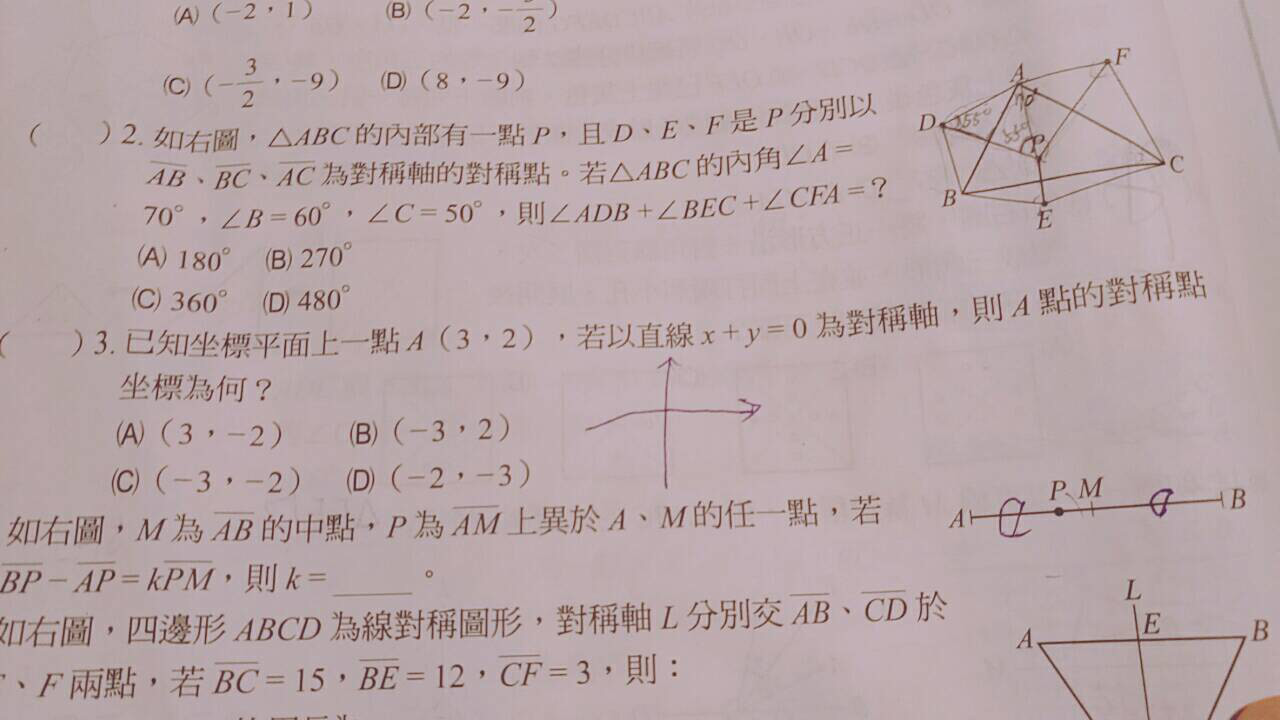 (A) (−2，1)　(B) (−2，−3/2)
(C) (−3/2，−9)　(D) (8，−9)
(　) 2. 如右圖，△ABC 的內部有一點 P，且 D、E、F 是 P 分別以
AB、BC、AC 為對稱軸的對稱點。若△ABC 的內角∠A =
70°，∠B = 60°，∠C = 50°，則∠ADB +∠BEC +∠CFA =？
(A) 180°　(B) 270°
(C) 360°　(D) 480°
A F D 70° 55° 55° P C B E
(　) 3. 已知坐標平面上一點 A（3，2），若以直線 x + y = 0 為對稱軸，則 A 點的對稱點
坐標為何？
(A)（3，−2）　(B)（−3，2）
(C)（−3，−2）　(D)（−2，−3）
如右圖，M 為 AB 的中點，P 為 AM 上異於 A、M 的任一點，若
BP − AP = kPM，則 k = ______ 。
A P M B
如右圖，四邊形 ABCD 為線對稱圖形，對稱軸 L 分別交 AB、CD 於
、F 兩點，若 BC = 15，BE = 12，CF = 3，則：
L
A E B